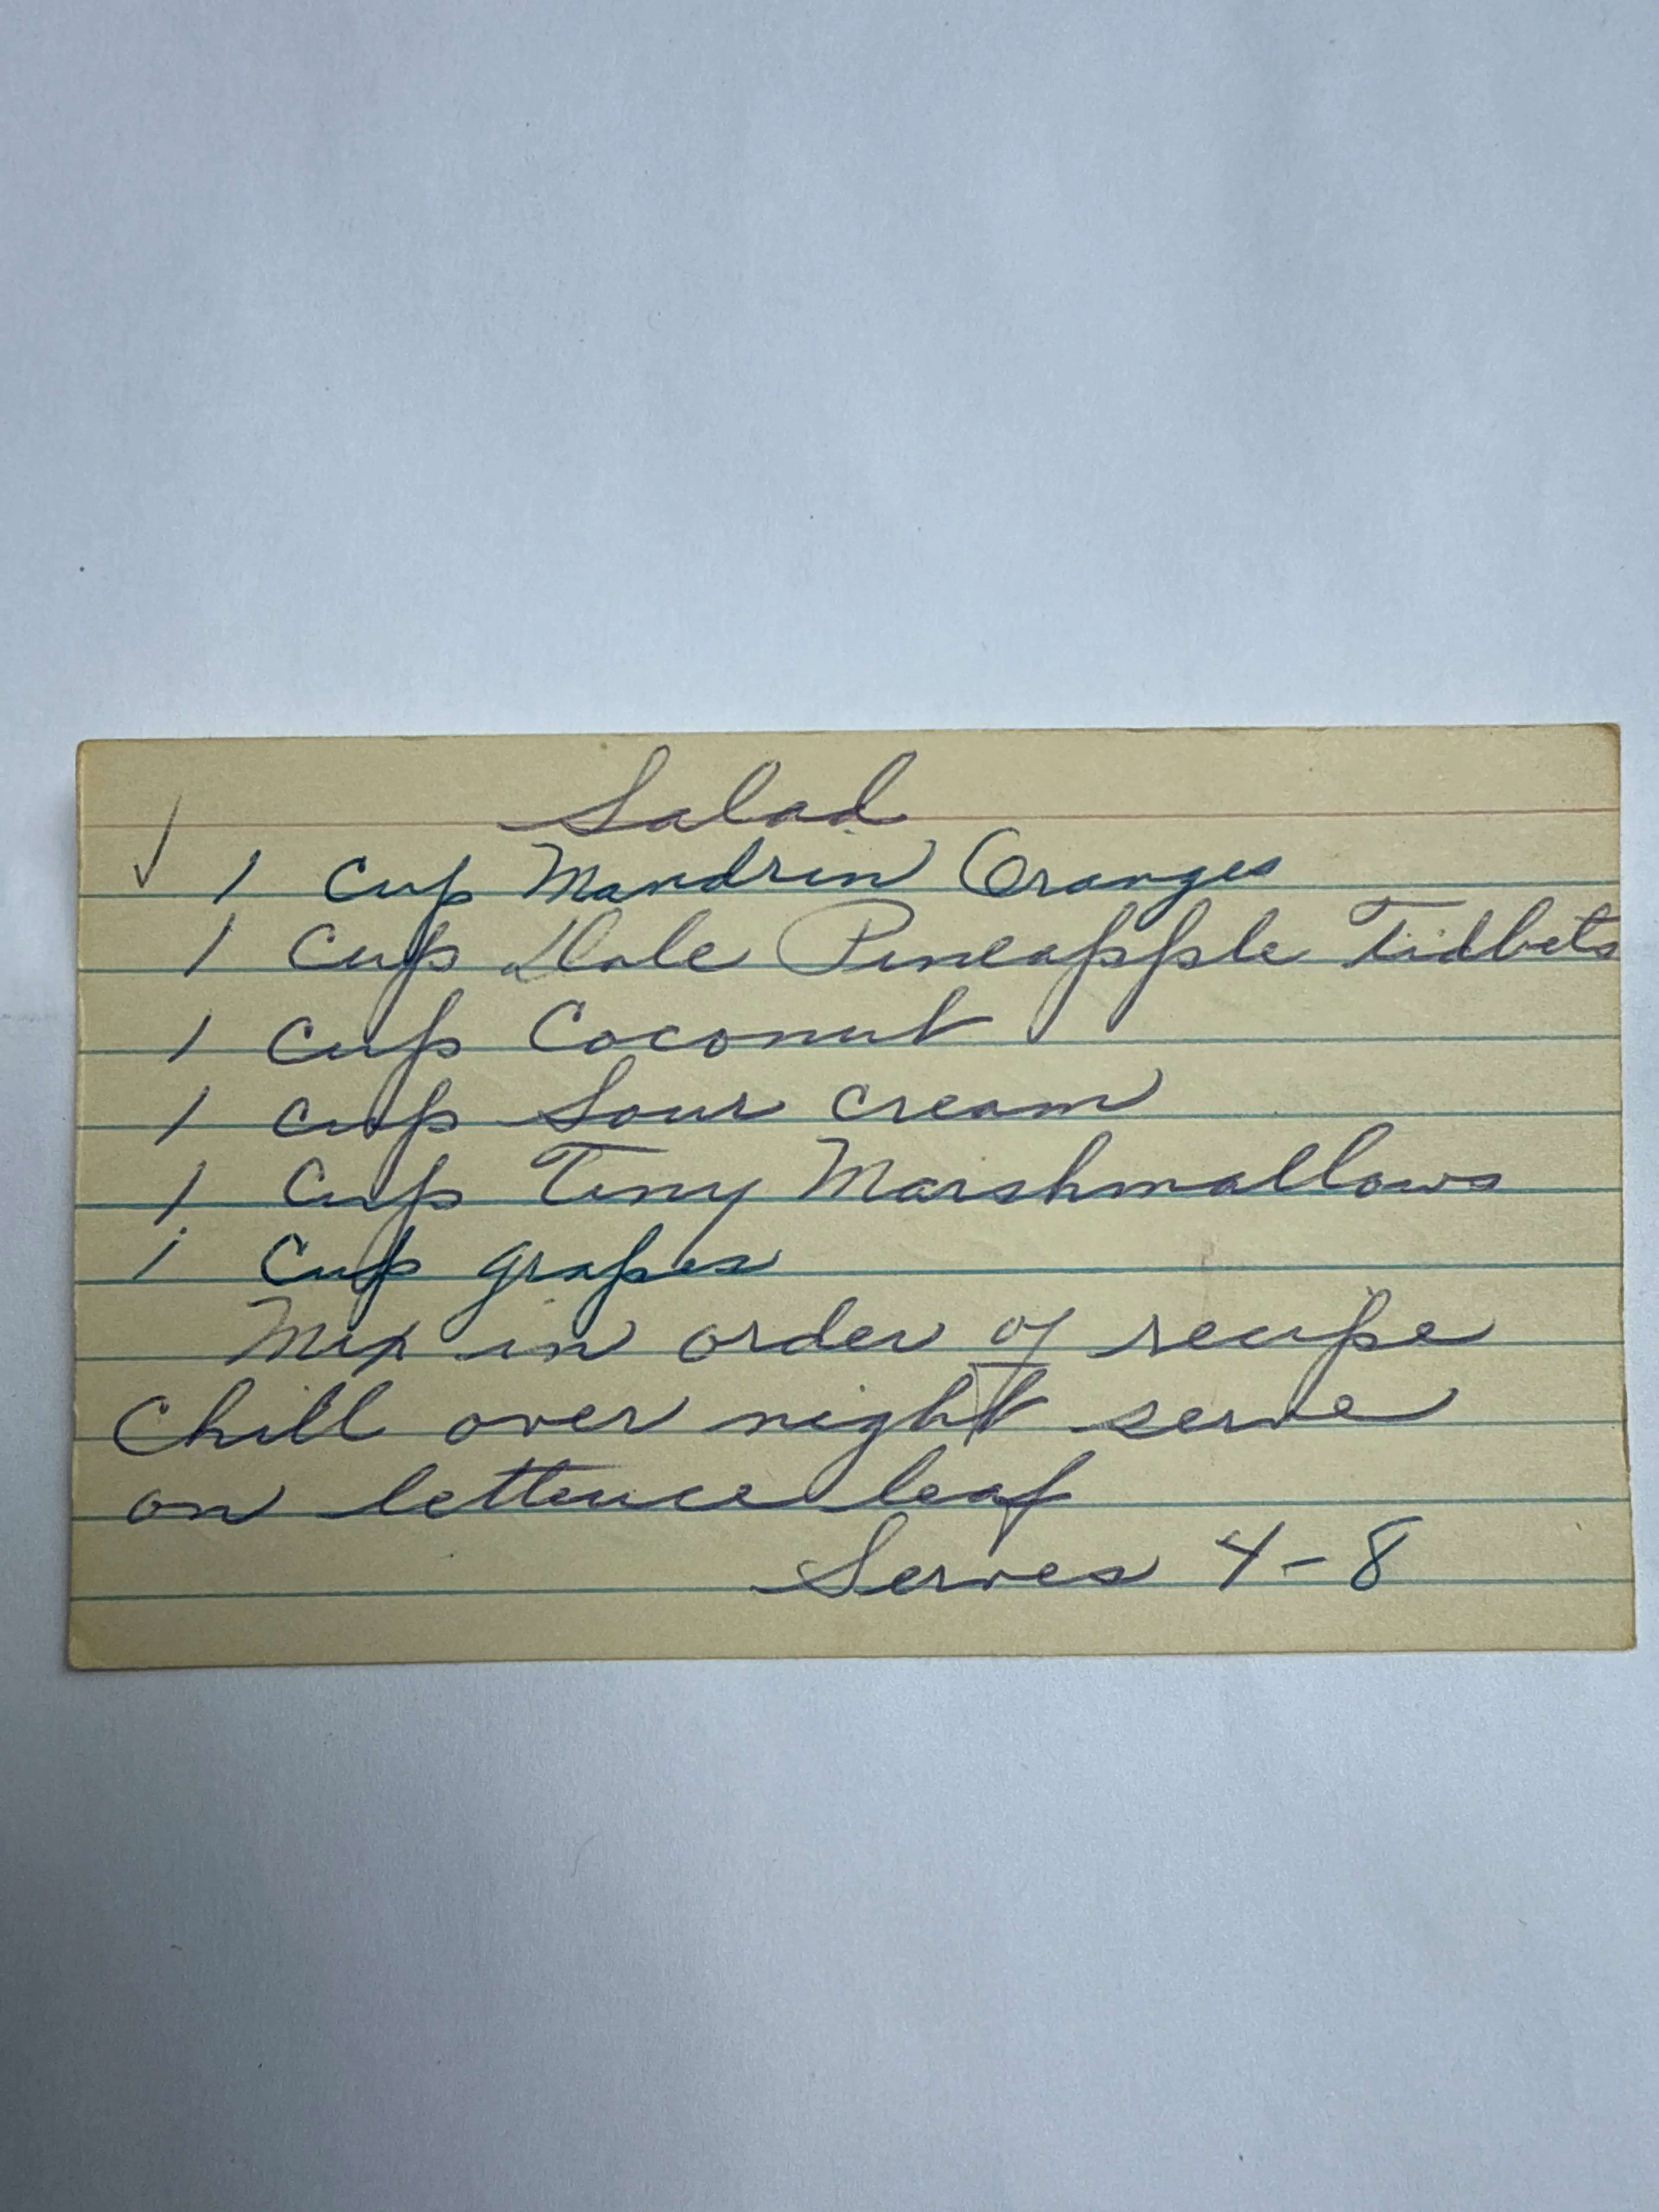 Salad
✓ 1 Cup Mandrin Oranges
1 Cup Dole Pineapple Tidbets
1 Cup Coconut
1 Cup Sour Cream
1 Cup Tiny Marshmallows
1 Cup grapes
Mix in order of recipe
Chill over night serve
on lettuce leaf
Serves 4-8